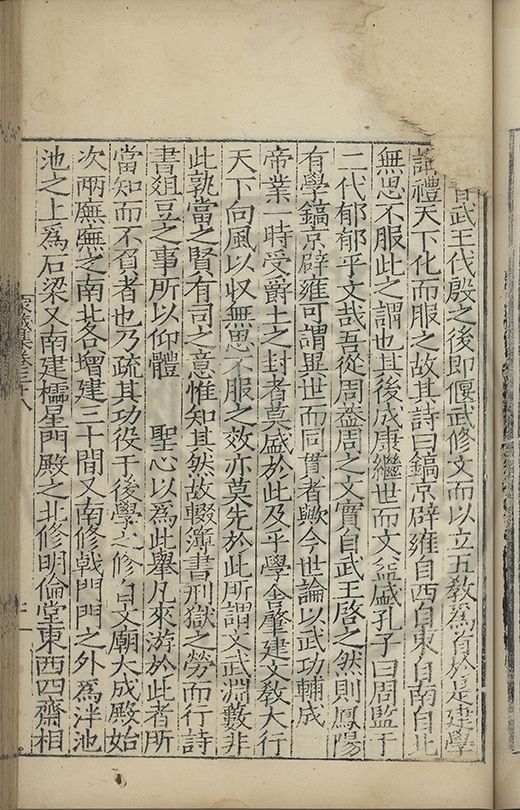 昔武王代殷之後即偃武修文而以立五教爲首於是建學
講禮天下化而服之故其詩曰鎬京辟雍自西自東自南自北
無思不服此之謂也其後成康繼世而文益盛孔子曰周監于
二代郁郁乎文哉吾從周葢周之文實自武王啓之然則鳳陽
有學鎬京辟雍可謂異世而同貫者歟今世論以武功輔成
帝業一時受爵土之封者莫盛於此及乎學舍肇建文教大行
天下向風以收無思不服之效亦莫先於此所謂文武淵藪非
此孰當之賢有司之意惟知其然故輟簿書刑獄之勞而行詩
書俎豆之事所以仰體 聖心以爲此舉凡來游於此者所
當知而不負者也乃疏其功役于後學之修自文廟大成殿始
次兩廡廡之南北各增建三十間又南修㦸門門之外爲泮池
池之上爲石梁又南建櫺星門殿之北修明倫堂東西四齋相
集卷三十八